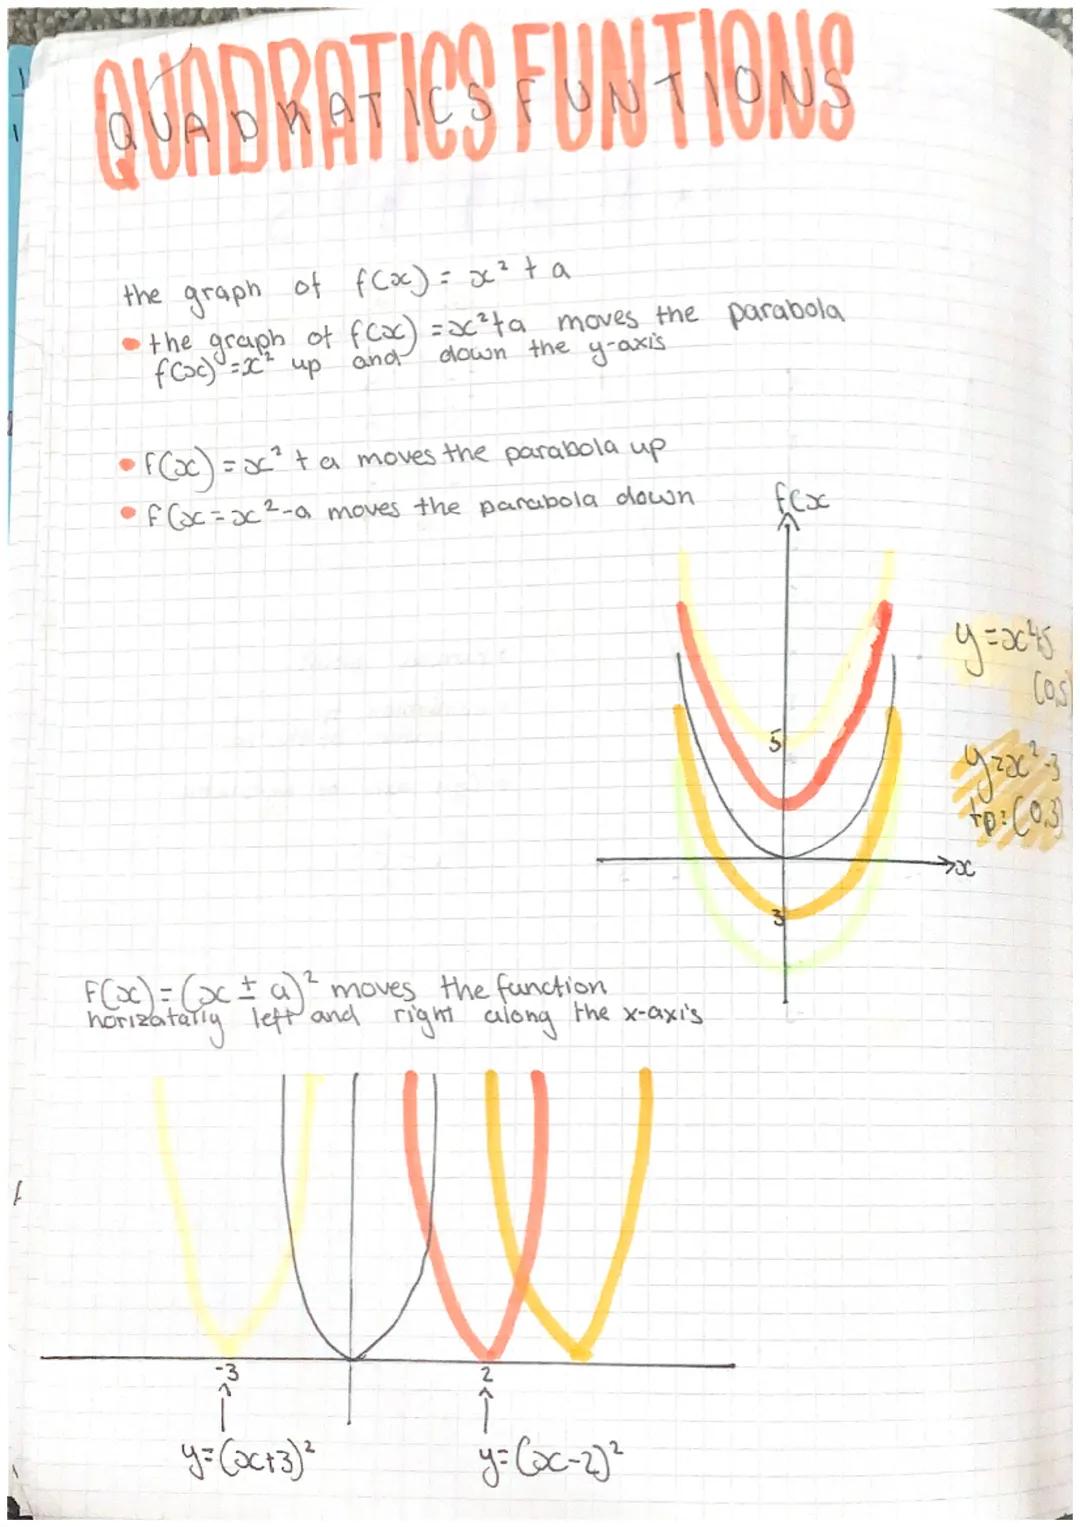 QUADRATICS FUNTIONS
the graph of f(x) = x² + a
• the graph of f(x) = x²+a moves the parabola
f(x) = x² up and down the y-axis
• f(x) = x² + a moves the parabola up
• f(x = x²-a moves the parabola down
f(x
y=x²+5
(0,5
5
y=x²-3
tp:(0,3)
x
3
F(x) = (x ± a)² moves the function
horizatally left and right along the x-axis
-3
2
y=(x+3)²
y=(x-2)²